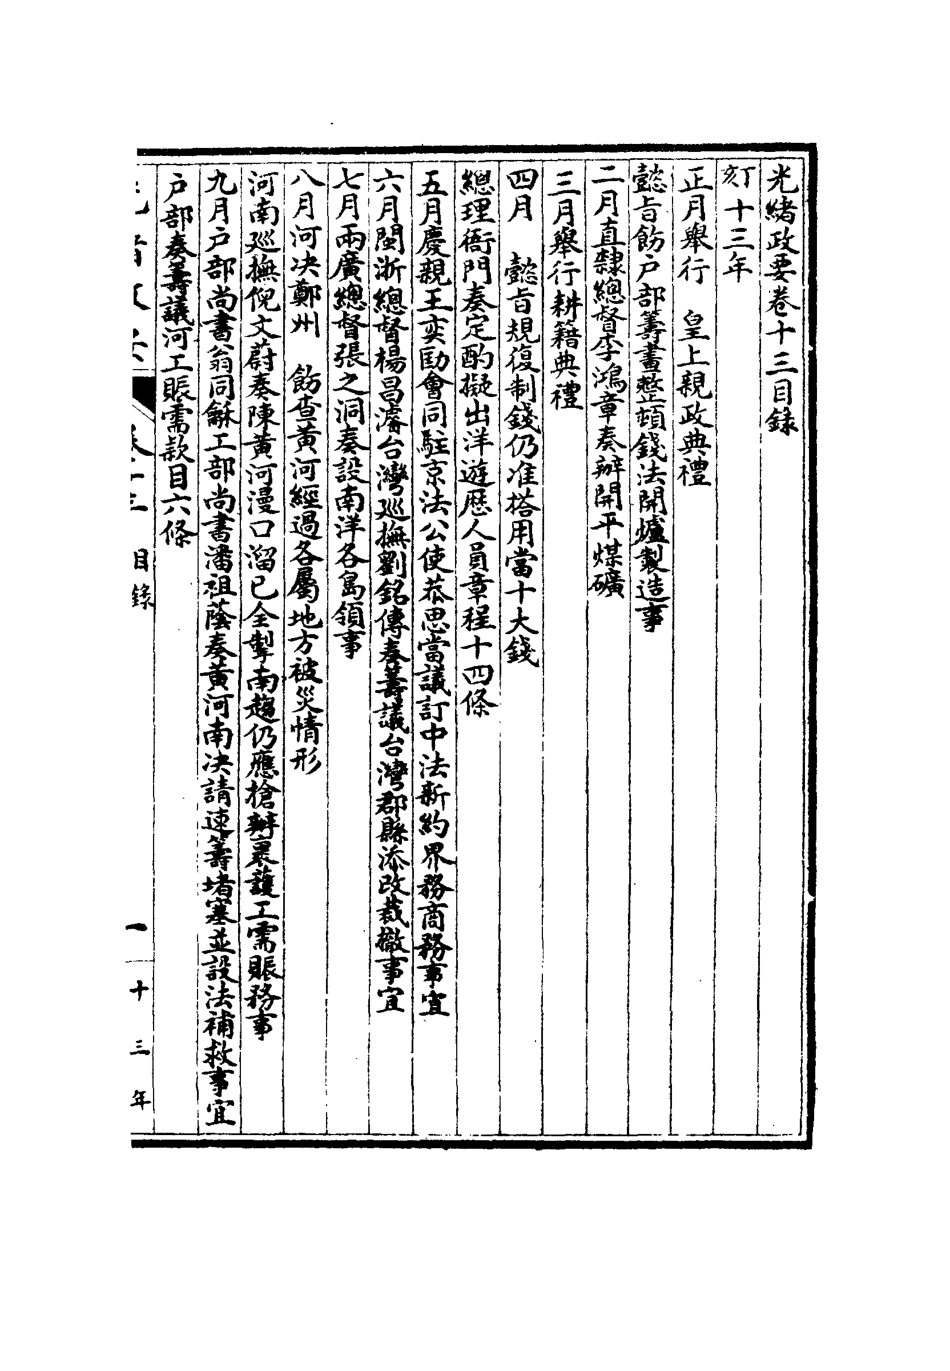 光緒政要卷十三目錄
丁亥十三年
正月舉行　皇上親政典禮
懿旨飭戶部籌畫整頓錢法開爐製造事
二月直隸總督李鴻章奏辦開平煤礦
三月舉行耕籍典禮
四月　懿旨規復制錢仍准搭用當十大錢
總理衙門奏定酌擬出洋遊歷人員章程十四條
五月慶親王奕劻會同駐京法公使恭思當議訂中法新約界務商務事宜
六月閩浙總督楊昌濬台灣巡撫劉銘傳奏籌議台灣郡縣添改裁撤事宜
七月兩廣總督張之洞奏設南洋各島領事
八月河决鄭州　飭查黃河經過各屬地方被災情形
河南巡撫倪文蔚奏陳黃河漫口溜已全掣南趨仍應搶辦裹護工需賑務事
九月戶部尚書翁同龢工部尚書潘祖蔭奏黃河南决請速籌堵塞並設法補救事宜
戶部奏籌議河工賑需款目六條
光緒政要　卷十三　目錄　一　十三年